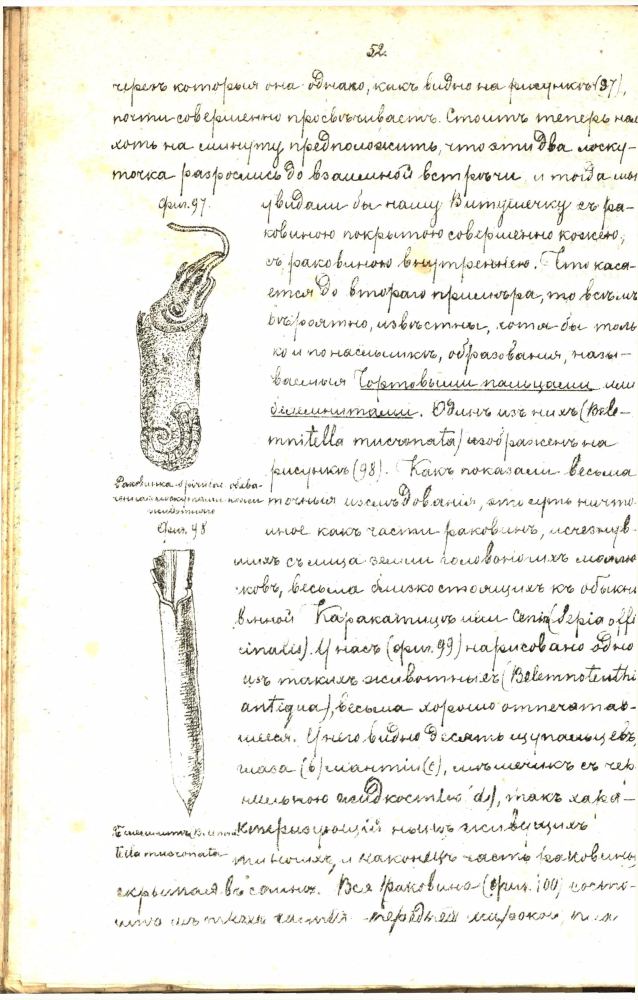 52.
черезъ которыя она однако, какъ видно на рисункѣ (97),
почти совершенно просвѣчиваетъ. Стоитъ теперь нам
хоть на минуту предположить, что эти два лоску-
точка разрослись до взаимной встрѣчи и тогда мы
Фиг. 97.
увидали бы нашу Витушечку съ ра-
ковиною покрытою совершенно кожею,
съ раковиною внутреннею. Что каса-
ется до второго примѣра, то всѣмъ
вѣроятно, извѣстны, хотя бы толь
ко и по наслышкѣ, образованія, назы-
ваемыя Чортовыми пальцами или
белемнитами. Одинъ изъ нихъ (Bele-
mnitella mucronata) изображенъ на
рисункѣ (98). Какъ показали весьма
точныя изслѣдованія, это суть ничто
иное какъ части раковинъ, исчезнув-
шихъ съ лица земли головоногихъ моллю
сковъ, весьма близко стоящихъ къ обыкн
венной Каракатицѣ или (Sepia offi
cinalis). У насъ (фиг. 99) нарисовано одно
изъ такихъ животныхъ (Belemnoteuthi
antiqua), весьма хорошо отпечатав-
шееся. У него видно десять щупальцевъ,
глаза (b) мантія (c), мѣшечикъ съ чер
нильною жидкостью (d), такъ хара-
ктеризующій нынѣ живущихъ
и наконецъ часть раковины
скрытая въ спинѣ. Вся раковина (фиг. 100) состо-
передней широкой,
Раковинка обхва-
ченная лоскутками кожи
животнаго
Фиг. 98
tella mucronata